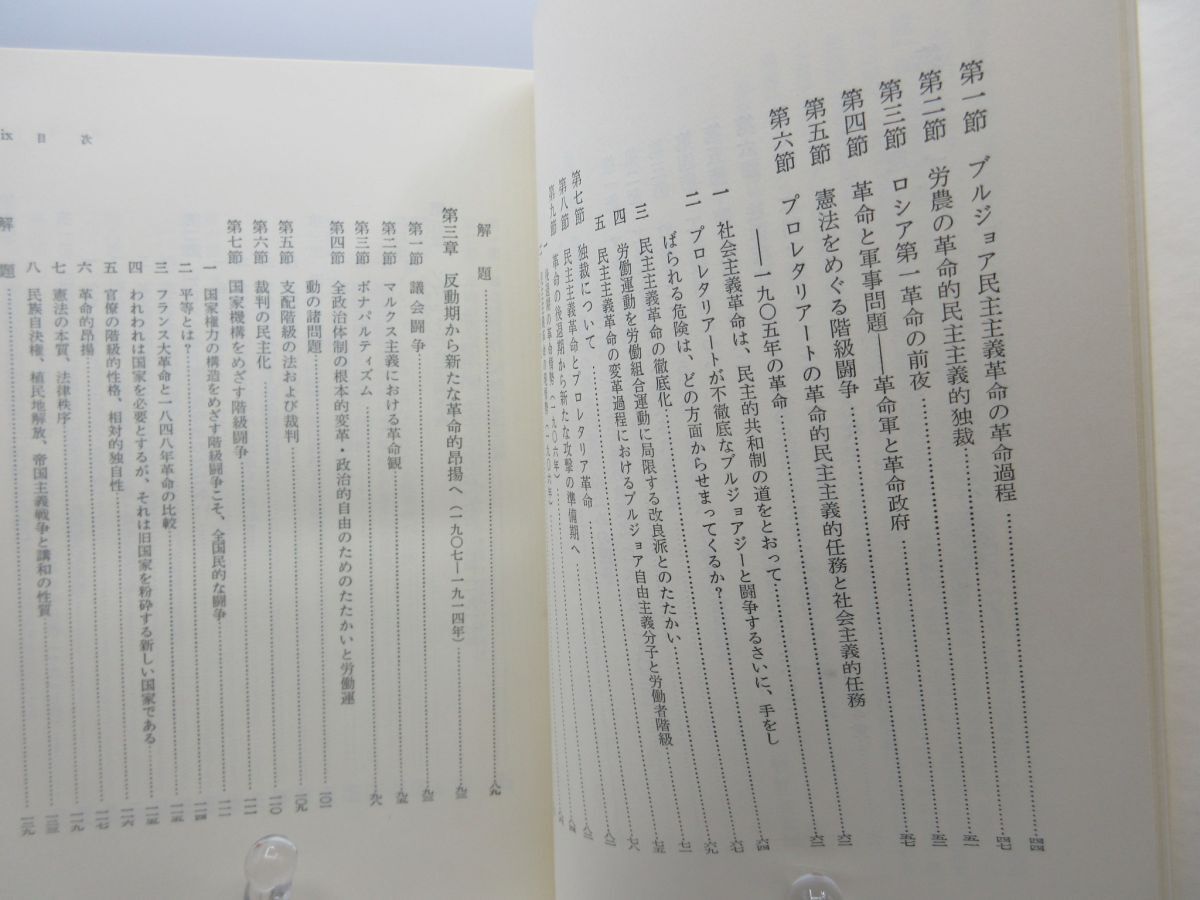 第一節　ブルジョア民主主義革命の革命過程……四四
第二節　労農の革命的民主主義的独裁……四七
第三節　ロシア第一革命の前夜……五一
第四節　革命と軍事問題――革命軍と革命政府……五七
第五節　憲法をめぐる階級闘争……
第六節　プロレタリアートの革命的民主主義的任務と社会主義的任務
――一九〇五年の革命……
一　社会主義革命は、民主的共和制の道をとおって……六四
二　プロレタリアートが不徹底なブルジョアジーと闘争するさいに、手をし
ばられる危険は、どの方面からせまってくるか?……六七
三　民主主義革命の徹底化……六九
四　労働運動を労働組合運動に局限する改良派とのたたかい……七一
五　民主主義革命の変革過程におけるブルジョア自由主義分子と労働者階級……七五
第七節　独裁について……七八
第八節　民主主義革命とプロレタリア革命……
第九節　革命の後退期から新たな攻撃の準備期へ
次　目　xi
解　題……八九
第三章　反動期から新たな革命的昂揚へ(一九〇七―一九一四年)……九三
第一節　議会闘争……九三
第二節　マルクス主義における革命観……九五
第三節　ボナパルティズム……九八
第四節　全政治体制の根本的変革・政治的自由のためのたたかいと労働運
動の諸問題……一〇一
第五節　支配階級の法および裁判……一〇九
第六節　裁判の民主化……一一〇
第七節　国家機構をめざす階級闘争……一一一
一　国家権力の構造をめざす階級闘争こそ、全国民的な闘争……一一一
二　平等とは?……一一四
三　フランス大革命と一八四八年革命の比較……一一五
四　われわれは国家を必要とするが、それは旧国家を粉砕する新しい国家である……一一五
五　官僚の階級的性格、相対的独自性……一一六
六　革命的昂揚……一一七
七　憲法の本質、法律秩序……一一九
八　民族自決権、植民地解放、帝国主義戦争と講和の性質……
解　題……一三九